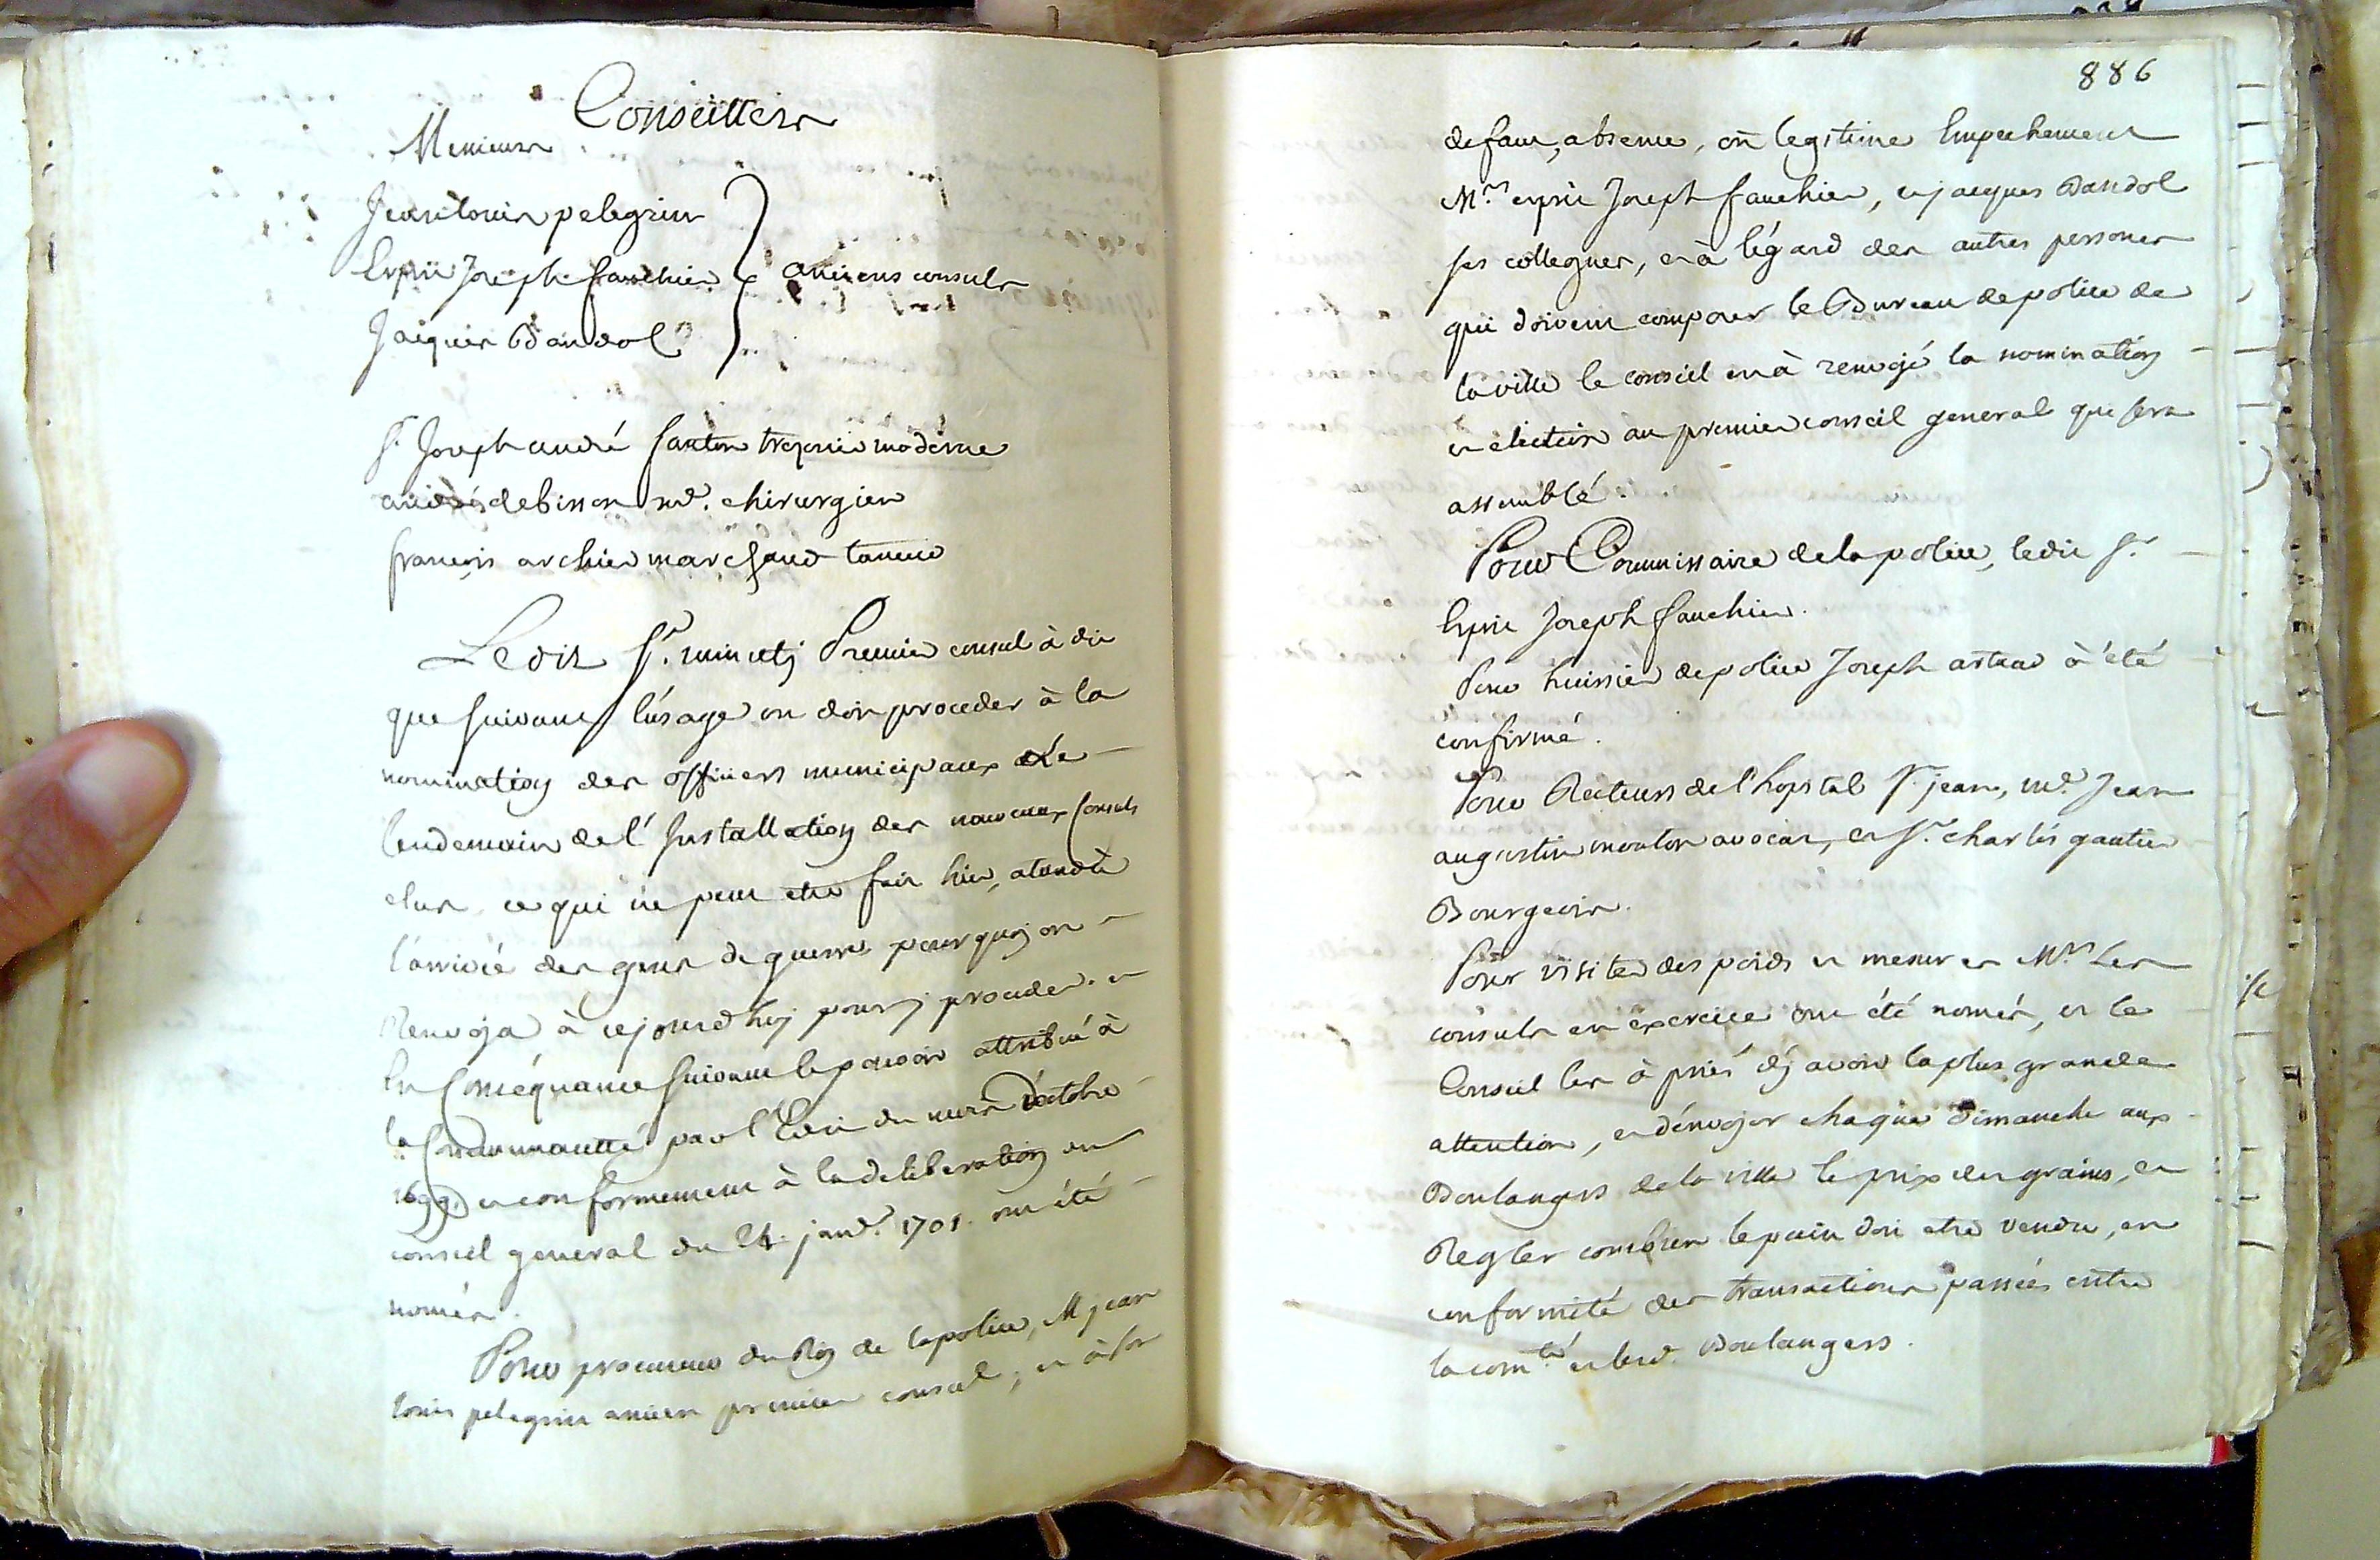 Conseillers
Messieurs
Jean louis pelegrin
Esprit Joseph fauchier
anciens consuls
Jacques Bandol
Sr. Joseph andré sauton trezorier moderne
andré debisson md. chirurgien
françois archier marchand taneur
Ledit Sr. minutj Premier consul à dit
que suivant l'usage on doit proceder à la
nomination des officiers municipaux Le
lendemain de l'Installation des nouveaux Consuls
elus, ce qui ne peut etre fait hier, atandu
l'arrivée des gens de guerre pourquoj on
Renvoja à cejourd'huj pour j proceder. et
En Conséquance suivant le pouvoir attribué à
la Communautté par l'Edit du mois d'octobre
1699. et conformement à la deliberation du
conseil general du 24. janvr. 1701. ont été
només.
Pour procureur du Roj de la police, M jean
louis pelegrin ancien premier consul, et à son
886
defaut, absence, ou legitime Empechement
Mrs. esprit Joseph fauchier, et jacques Bandol
ses collegues, et à l'égard des autres personnes
qui doivent composer le Bureau de police de
la ville le conseil en à renvojé la nomination
et election au premier conseil general que sera
assemblé.
Pour Commissaire de la police, ledit Sr.
Esprit Joseph fauchier.
Pour huissier de police Joseph artaud à été
confirmé.
Pour Recteurs de l'hopital St. jean, me. Jean
augustin mouton avocat, et Sr. charles gautier
Bourgeois.
Pour visiter des poids et mesures Mrs. Les
consuls en exercice ont été només, et le
Conseil les à priés d'j avoir la plus grande
attention, et d'envojer chaque dimanche aux
Boulangers de la ville le prix des grains, et
Regler combien le pain doit etre vendu, en
conformité des transactions passées entre
la comté. et lesd. Boulangers.